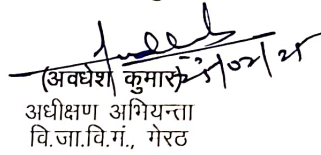 (अवधेश कुमार)
अधीक्षण अभियन्ता
वि.जा.वि.गं., गेरठ